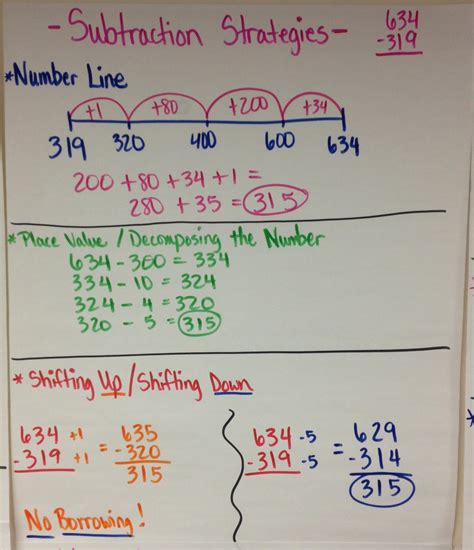 - Subtraction Strategies -
634
-319
*Number Line
+1 +80 +200 +34
319 320 400 600 634
200 + 80 + 34 + 1 =
280 + 35 = 315
*Place Value / Decomposing the Number
634 - 300 = 334
334 - 10 = 324
324 - 4 = 320
320 - 5 = 315
* Shifting Up / Shifting Down
634 +1 = 635
-319 +1 -320
315
634 -5 = 629
-319 -5 -314
315
No Borrowing!